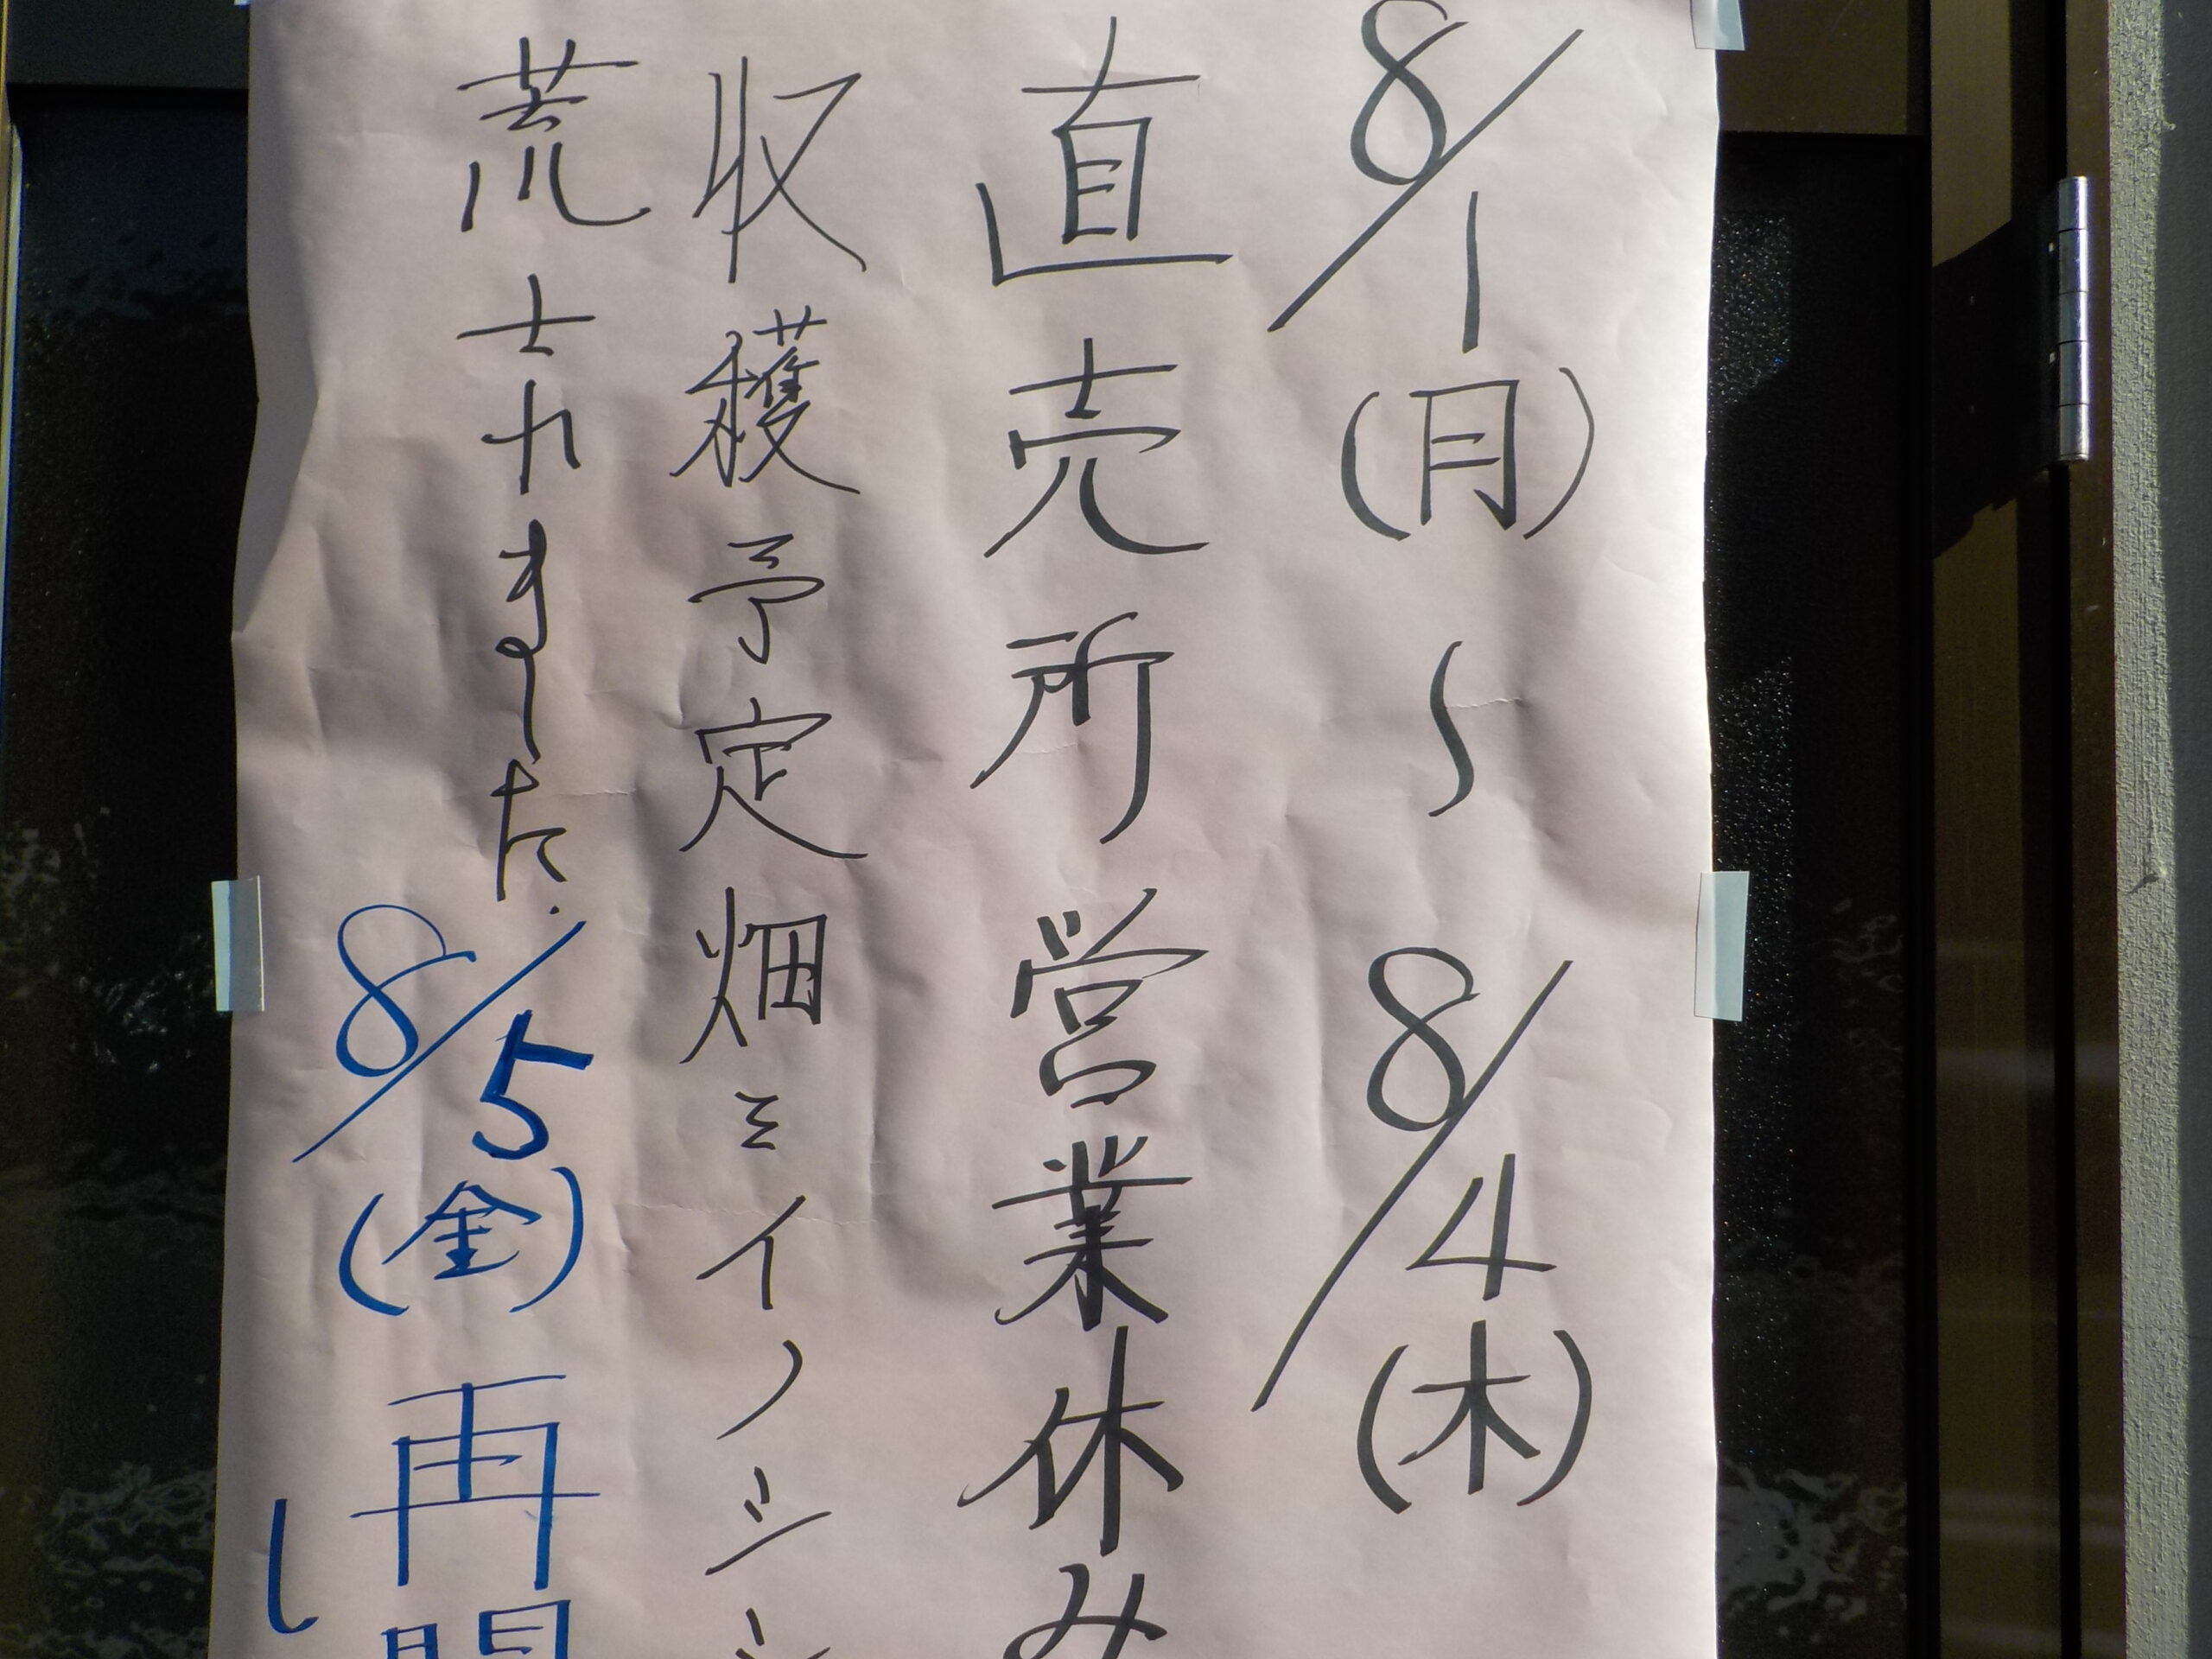 8/1(月)〜8/4(木)
直売所営業休み
収穫予定畑ミイノシシ
荒されました.
8/5(金)再開
し